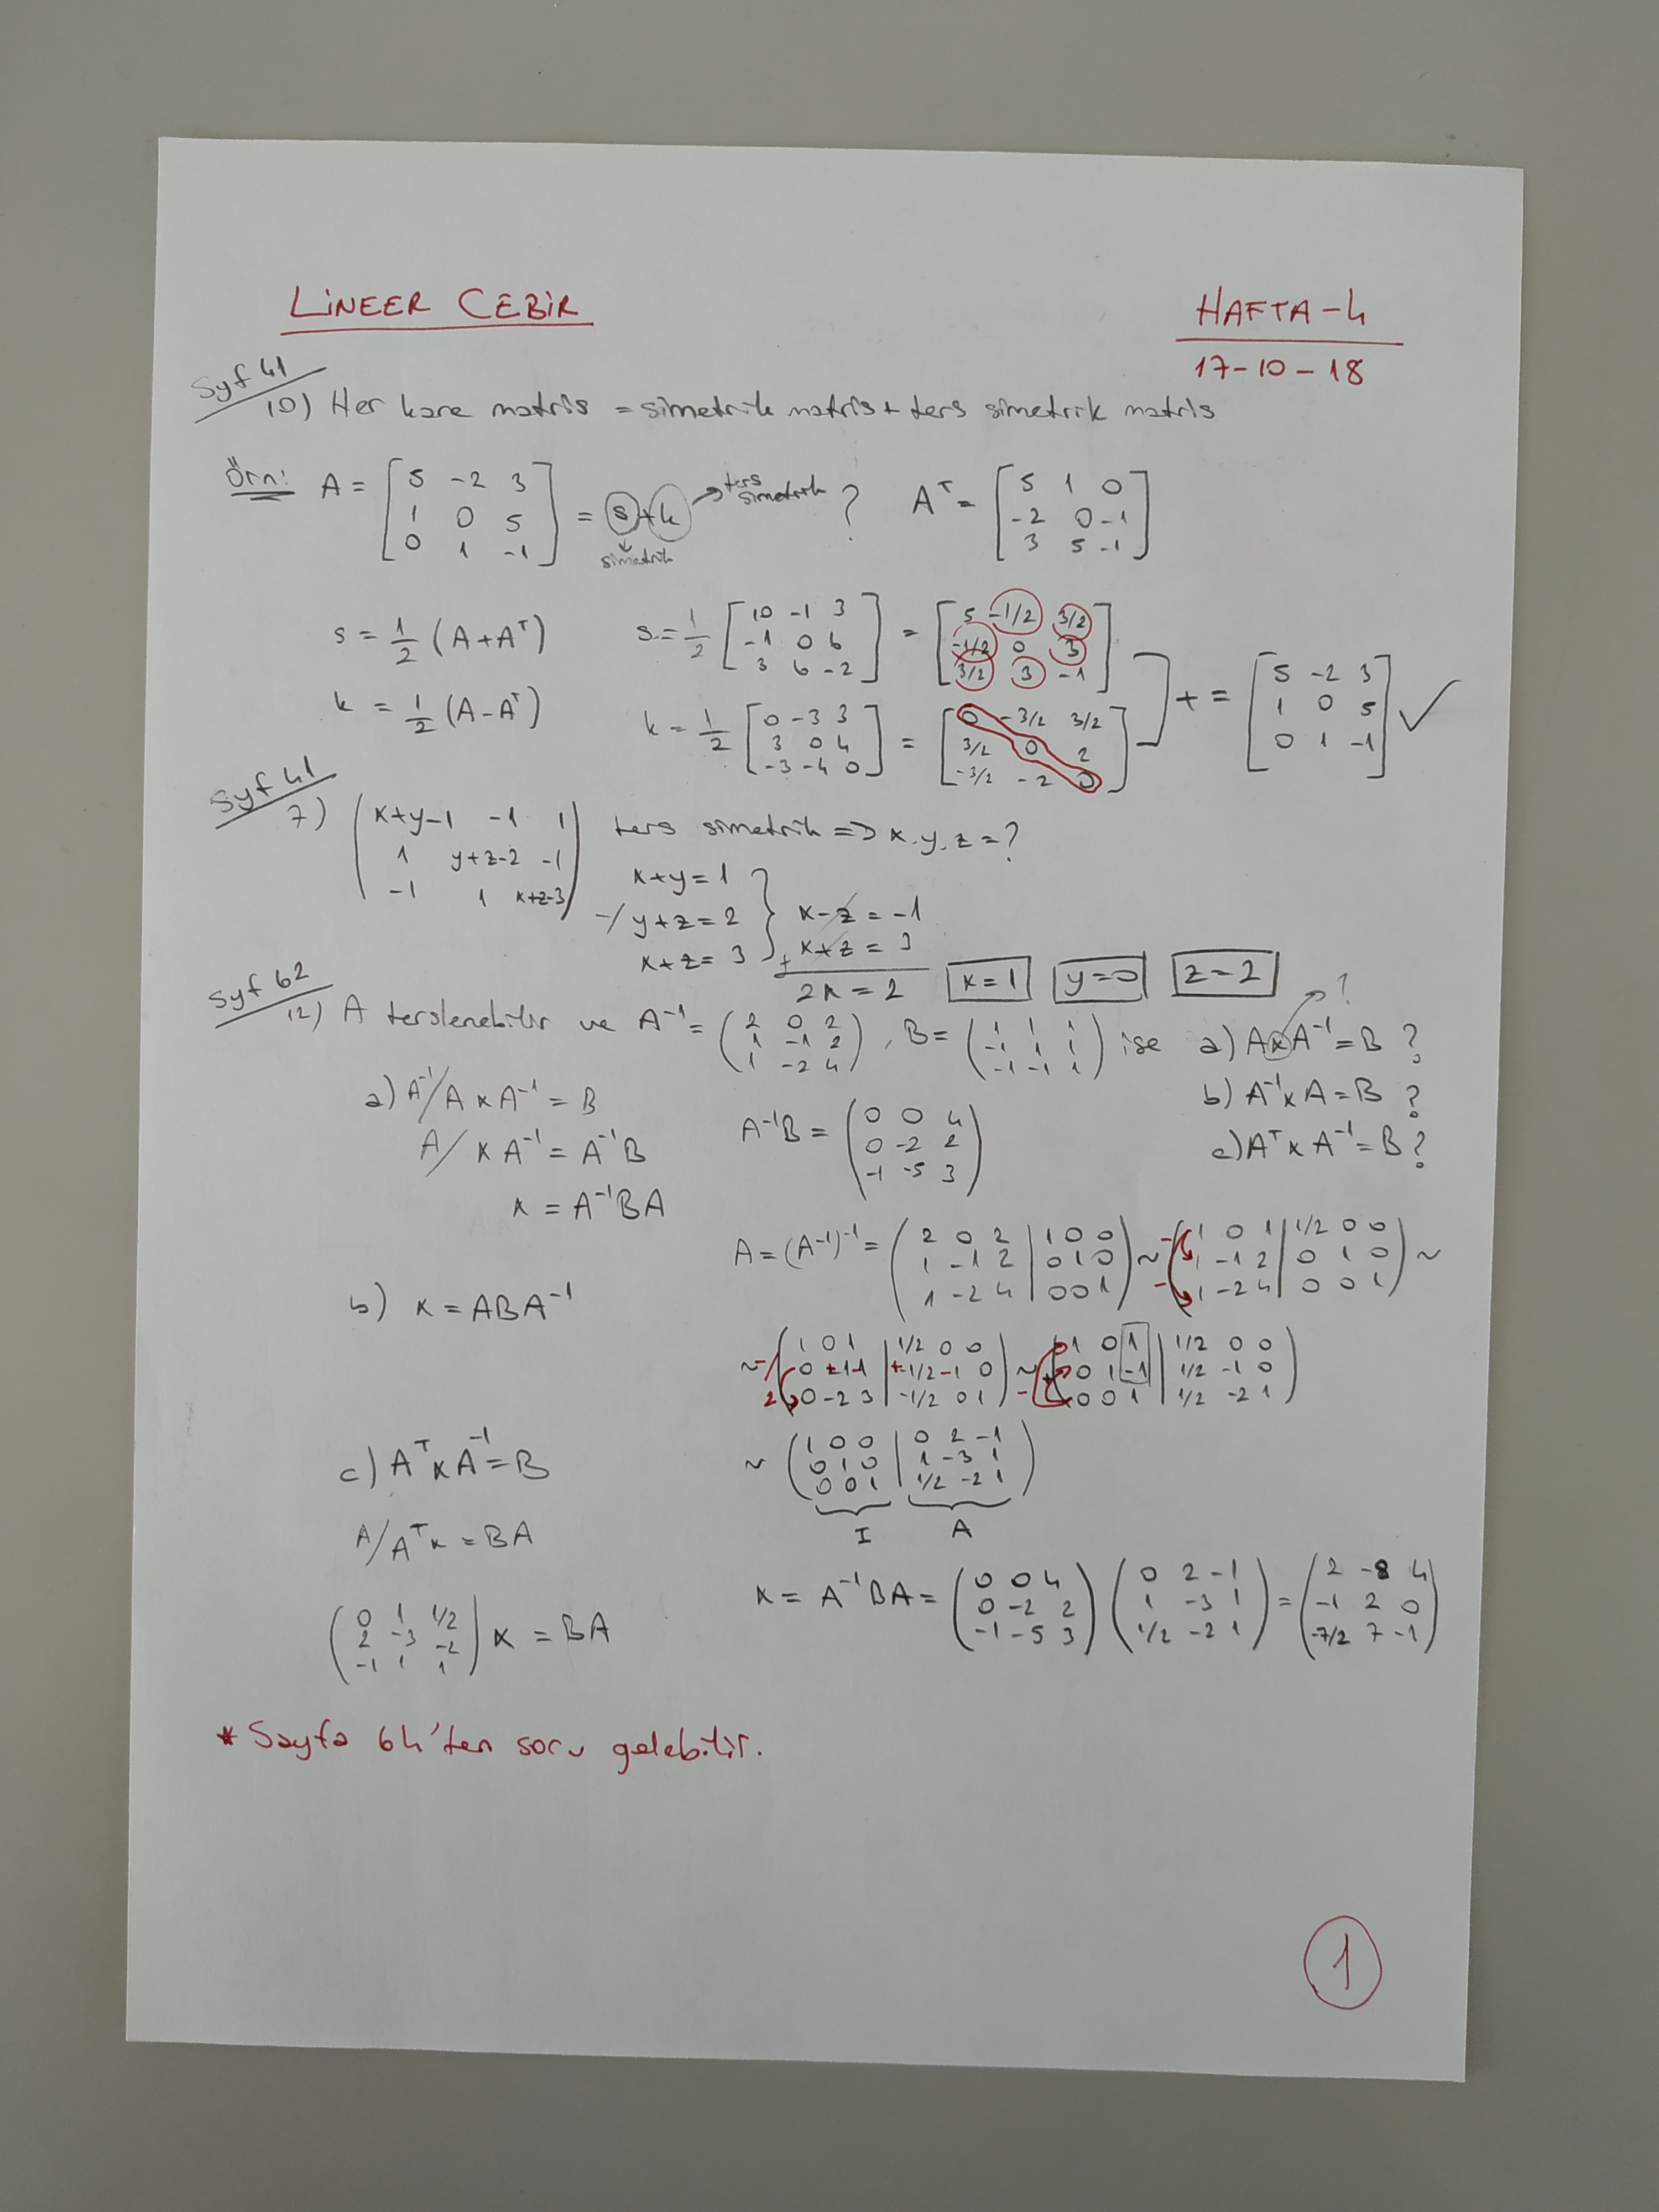 LİNEER CEBİR
HAFTA-4
17-10-18
Syf 41
10) Her kare matris = simetrik matris + ters simetrik matris
Örn: A = [5 -2 3; 1 0 5; 0 1 -1] = s+k → ters simetrik ? Aᵀ = [5 1 0; -2 0 -1; 3 5 -1]
simetrik
s = 1/2 (A+Aᵀ) s = 1/2 [10 -1 3; -1 0 6; 3 6 -2] = [5 -1/2 3/2; -1/2 0 3; 3/2 3 -1]
k = 1/2 (A-Aᵀ) k = 1/2 [0 -3 3; 3 0 4; -3 -4 0] = [0 -3/2 3/2; 3/2 0 2; -3/2 -2 0] ] + = [5 -2 3; 1 0 5; 0 1 -1] ✓
Syf 41
7) (x+y-1 -1 1; 1 y+z-2 -1; -1 1 x+z-3) ters simetrik => x,y,z=?
x+y=1
-/ y+z=2 } x-z=-1
x+z=3 } + x+z=3
2x=2 x=1 y=0 z=2
Syf 62
12) A terslenebilir ve A⁻¹ = (2 0 2; 1 -1 2; 1 -2 4), B = (1 1 1; -1 1 1; -1 -1 1) ise a) AXA⁻¹=B ?
b) A⁻¹XA=B ?
c) AᵀXA⁻¹=B ?
a) A⁻¹/ AXA⁻¹ = B
A/ XA⁻¹ = A⁻¹B
X = A⁻¹BA
A⁻¹B = (0 0 4; 0 -2 2; -1 -5 3)
A = (A⁻¹)⁻¹ = (2 0 2 | 1 0 0; 1 -1 2 | 0 1 0; 1 -2 4 | 0 0 1) ~ (1 0 1 | 1/2 0 0; 1 -1 2 | 0 1 0; 1 -2 4 | 0 0 1) ~
b) X = ABA⁻¹
~ (1 0 1 | 1/2 0 0; 0 +1 -1 | +1/2 -1 0; 0 -2 3 | -1/2 0 1) ~ (1 0 1 | 1/2 0 0; 0 1 -1 | 1/2 -1 0; 0 0 1 | 1/2 -2 1)
c) AᵀXA⁻¹=B
~ (1 0 0 | 0 2 -1; 0 1 0 | 1 -3 1; 0 0 1 | 1/2 -2 1)
I A
A/ AᵀX = BA
(0 1 1/2; 2 -3 -2; -1 1 1) X = BA
X = A⁻¹BA = (0 0 4; 0 -2 2; -1 -5 3) (0 2 -1; 1 -3 1; 1/2 -2 1) = (2 -8 4; -1 2 0; -7/2 7 -1)
* Sayfa 64'ten soru gelebilir.
1